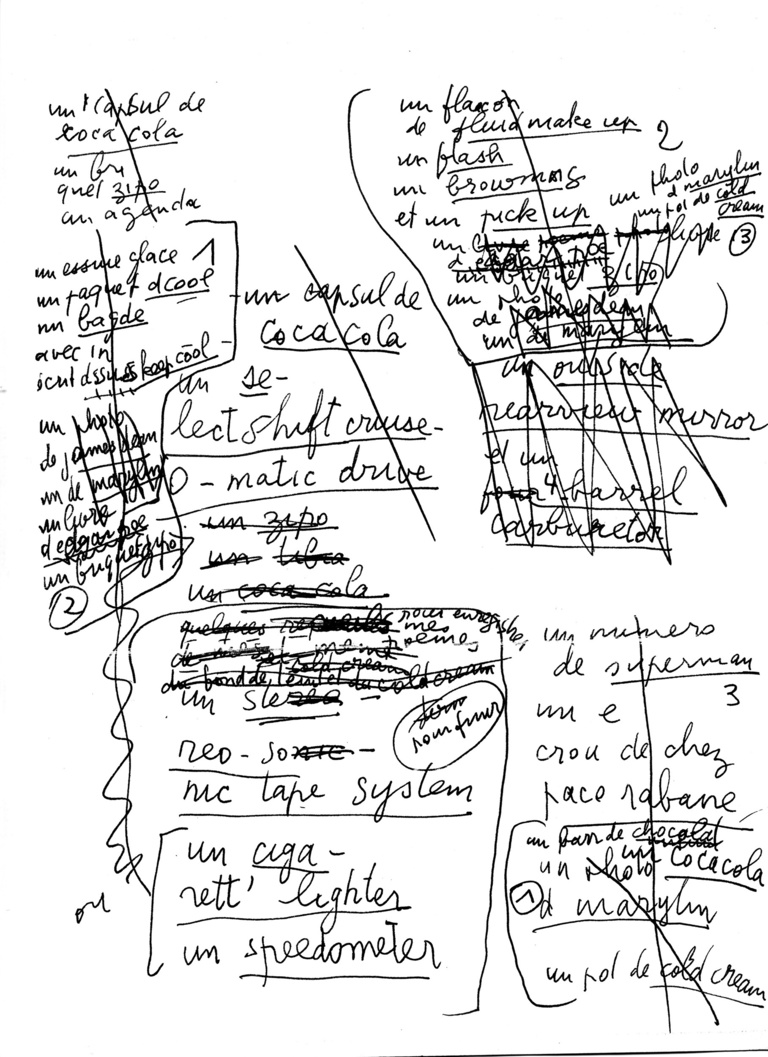 un capsul de
coca cola
un bri
quet zipo
un agenda
un essuie glace 1
un paquet dcool
un bagde
avec in
scrit dssus keep cool
un photo
de james dean
un de marylin
un livre
d edgar poe
un briquet zipo
2
- un capsul de
coca cola
un se-
lect shift cruise-
O - matic drive
un zipo
un libra
un coca cola
quelques
pour enregis
mes
poèmes
cold cream
du fond de teint et du cold cream
un stereo
pour finir
reo - sonic -
nic tape system
un ciga -
rett' lighter
un speedometer
ou
un flacon
de fluid make up 2
un flash
un browning
et un pick up
un photo
d marylin
un pot de cold
cream
3
un briquet zipo
un photo
de james dean
un de marylin
un outside
rearview mirror
et un
four 4 - barrel
carburetor
un numero
de superman
3
un e
crou de chez
paco rabane
un barr de chocolat
un coca cola
un photo
1
d marylin
un pot de cold cream